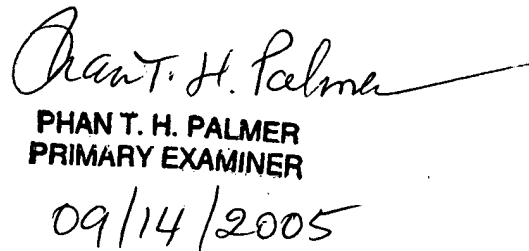 Phan T. H. Palmer
PHAN T. H. PALMER
PRIMARY EXAMINER
09/14/2005